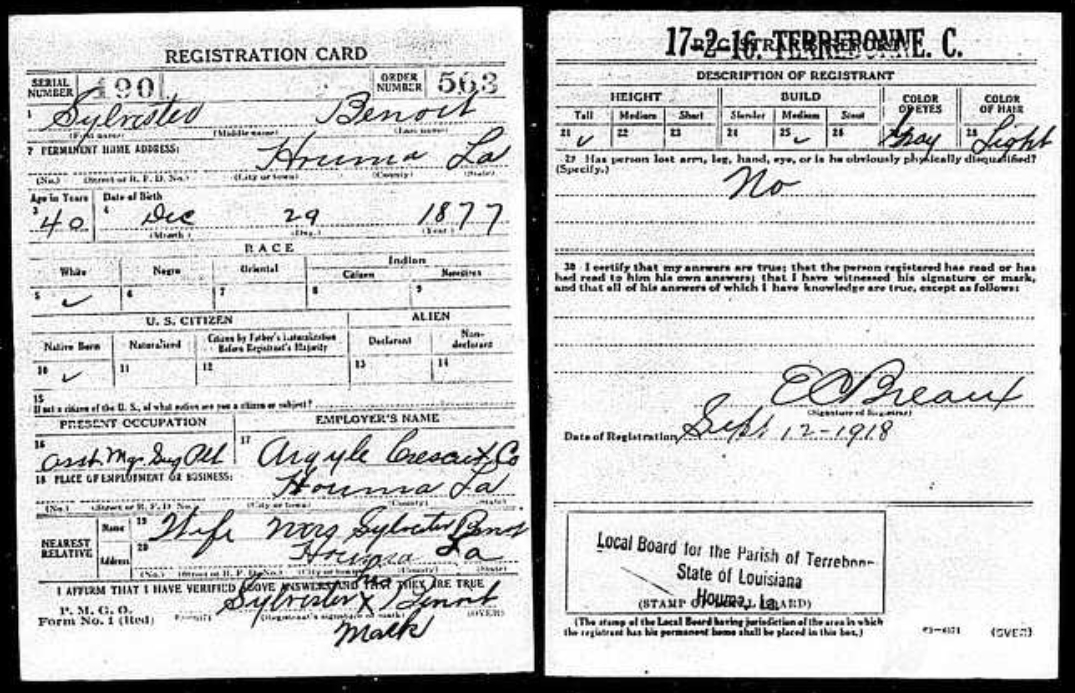 REGISTRATION CARD
SERIAL NUMBER 490
ORDER NUMBER 563
1 Sylvester Benoit
(First name) (Middle name) (Last name)
2 PERMANENT HOME ADDRESS:
Houma La
(No.) (Street or R. F. D. No.) (City or town) (County) (State)
Age in Years Date of Birth
3 40 4 Dec 29 1877
(Month) (Day) (Year)
RACE
White Negro Oriental Indian
Citizen Noncitizen
5 ✓ 6 7 8 9
U. S. CITIZEN ALIEN
Native Born Naturalized Citizen by Father's Naturalization Before Registrant's Majority Declarant Non-declarant
10 ✓ 11 12 13 14
15
If not a citizen of the U. S., of what nation are you a citizen or subject?
PRESENT OCCUPATION EMPLOYER'S NAME
16 asst Mgr. Sug Plt 17 Argyle Crescent Co
18 PLACE OF EMPLOYMENT OR BUSINESS:
Houma La
(No.) (Street or R. F. D. No.) (City or town) (County) (State)
NEAREST RELATIVE
Name 19 Wife Mrs Sylvester Benoit
Address 20 Houma La
(No.) (Street or R. F. D. No.) (City or town) (County) (State)
I AFFIRM THAT I HAVE VERIFIED ABOVE ANSWERS AND THAT THEY ARE TRUE
P. M. G. O.
Form No. 1 (Red)
Sylvester X Benoit
(Registrant's signature or mark) (OVER)
Mark
17-2-16. TERREBONNE. C.
REGISTRAR'S REPORT
DESCRIPTION OF REGISTRANT
HEIGHT BUILD COLOR OF EYES COLOR OF HAIR
Tall Medium Short Slender Medium Stout
21 ✓ 22 23 24 25 ✓ 26 Gray 28 Light
29 Has person lost arm, leg, hand, eye, or is he obviously physically disqualified?
(Specify.)
No
30 I certify that my answers are true; that the person registered has read or has
had read to him his own answers; that I have witnessed his signature or mark,
and that all of his answers of which I have knowledge are true, except as follows:
E C Breaux
(Signature of Registrar)
Date of Registration Sept 12-1918
Local Board for the Parish of Terrebonne
State of Louisiana
Houma, La.
(STAMP OF LOCAL BOARD)
(The stamp of the Local Board having jurisdiction of the area in which
the registrant has his permanent home shall be placed in this box.)
03-6171 (OVER)